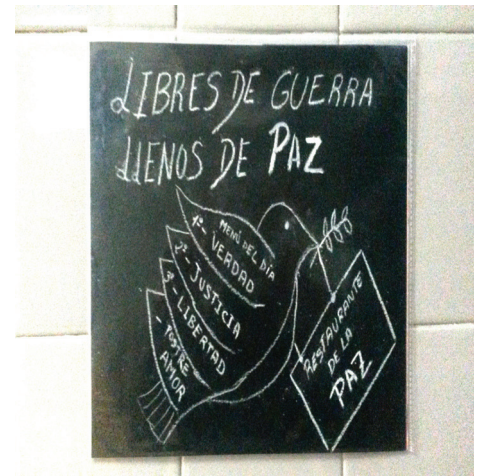 LIBRES DE GUERRA
LLENOS DE PAZ
MENÚ DEL DÍA
1º- VERDAD
2º- JUSTICIA
3º- LIBERTAD
- POSTRE
AMOR
RESTAURANTE
DE LA
PAZ